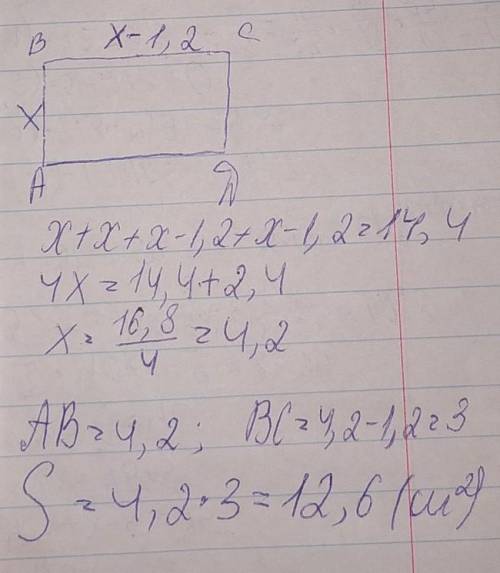 B x-1,2 C
x
A Д
x+x+x-1,2+x-1,2=14,4
4x=14,4+2,4
x=16,8/4=4,2
AB=4,2; BC=4,2-1,2=3
S=4,2·3=12,6(см²)